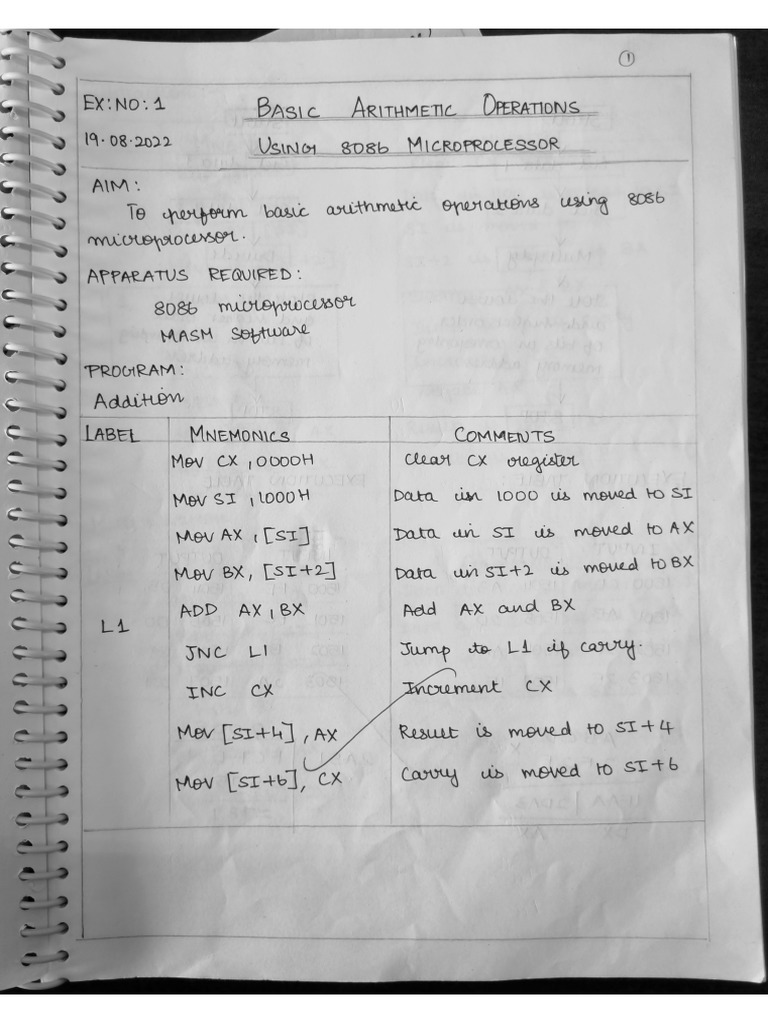 1
EX:NO:1 BASIC ARITHMETIC OPERATIONS
19.08.2022 USING 8086 MICROPROCESSOR
AIM:
To perform basic arithmetic operations using 8086
microprocessor.
APPARATUS REQUIRED:
8086 microprocessor
MASM Software
PROGRAM:
Addition
LABEL MNEMONICS COMMENTS
MOV CX, 0000H Clear CX register
MOV SI, 1000H Data in 1000 is moved to SI
MOV AX, [SI] Data in SI is moved to AX
MOV BX, [SI+2] Data in SI+2 is moved to BX
ADD AX, BX Add AX and BX
L1
JNC L1 Jump to L1 if carry.
INC CX Increment CX
MOV [SI+4], AX Result is moved to SI+4
MOV [SI+6], CX Carry is moved to SI+6